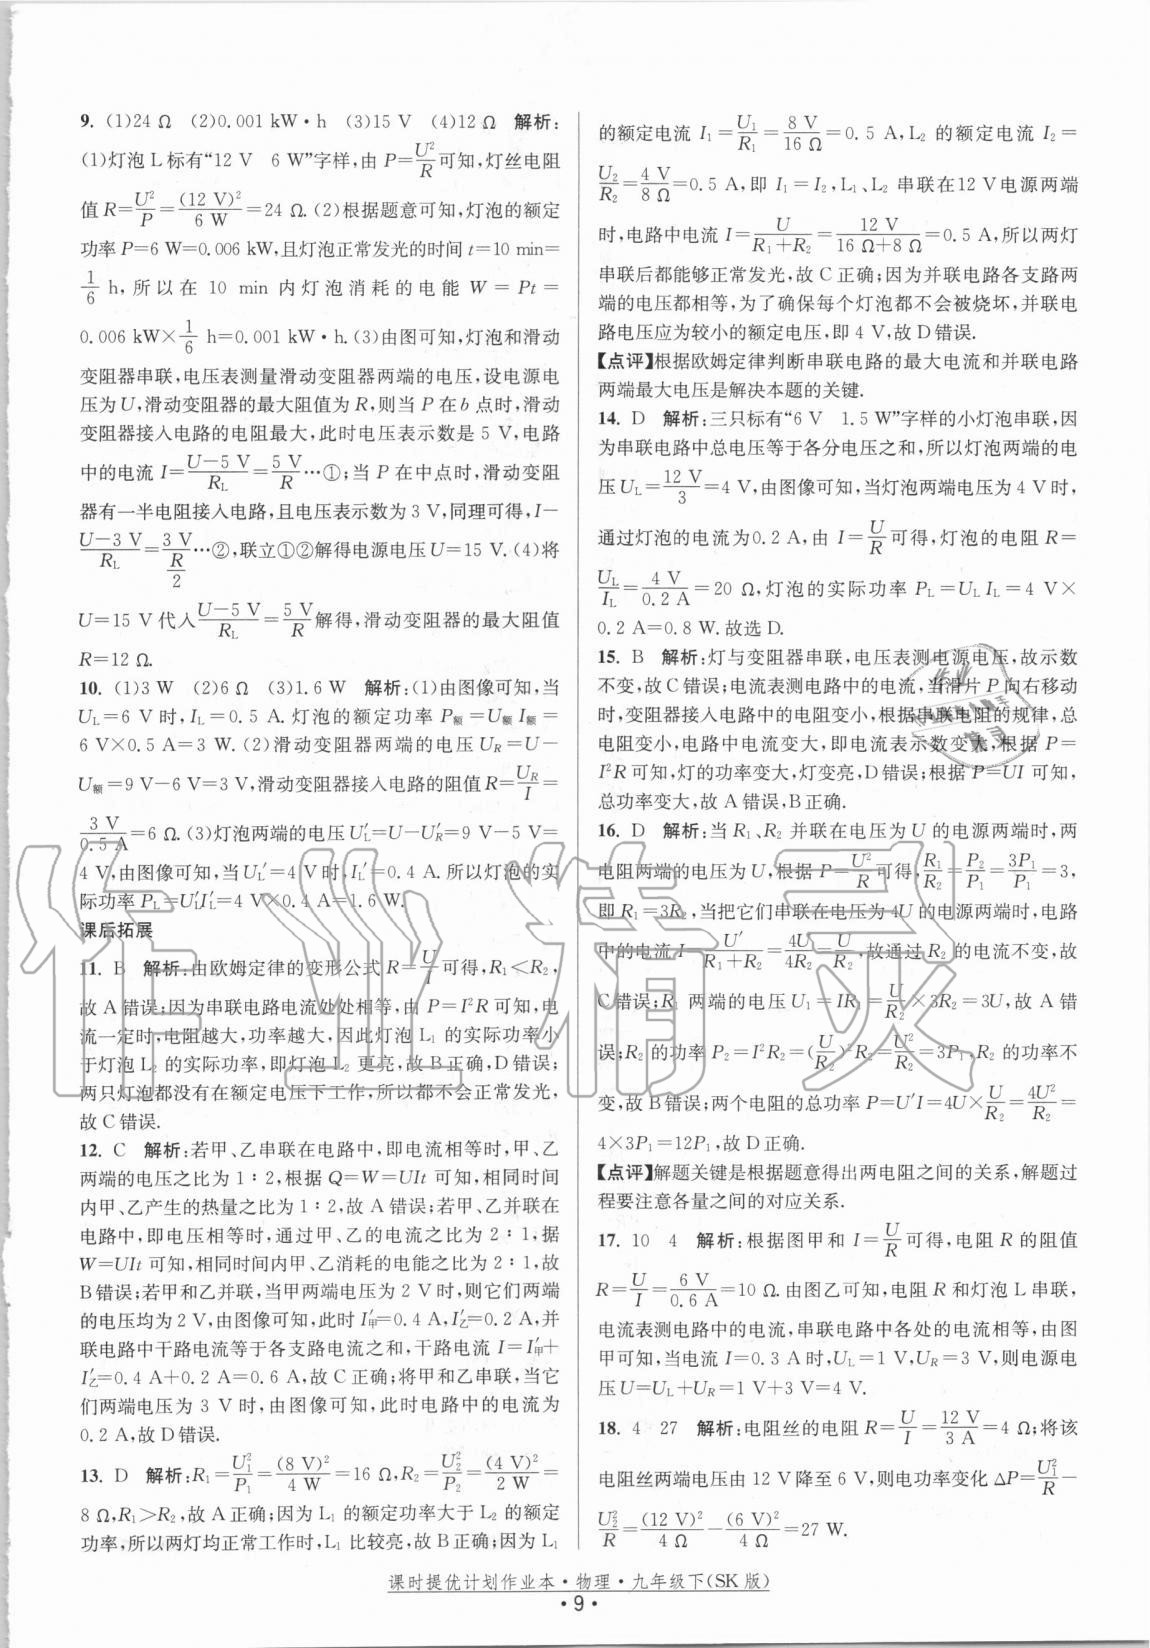 9. (1)24 Ω (2)0.001 kW·h (3)15 V (4)12 Ω 解析:
(1)灯泡 L 标有“12 V 6 W”字样,由 P=U²/R 可知,灯丝电阻
值 R=U²/P=(12 V)²/6 W=24 Ω.(2)根据题意可知,灯泡的额定
功率 P=6 W=0.006 kW,且灯泡正常发光的时间 t=10 min=
1/6 h,所以在 10 min 内灯泡消耗的电能 W=Pt=
0.006 kW×1/6 h=0.001 kW·h.(3)由图可知,灯泡和滑动
变阻器串联,电压表测量滑动变阻器两端的电压,设电源电
压为 U,滑动变阻器的最大阻值为 R,则当 P 在 b 点时,滑动
变阻器接入电路的电阻最大,此时电压表示数是 5 V,电路
中的电流 I=(U-5 V)/R_L=5 V/R…①;当 P 在中点时,滑动变阻
器有一半电阻接入电路,且电压表示数为 3 V,同理可得,I-
(U-3 V)/R_L=3 V/(R/2)…②,联立①②解得电源电压 U=15 V.(4)将
U=15 V 代入(U-5 V)/R_L=5 V/R 解得,滑动变阻器的最大阻值
R=12 Ω.
10. (1)3 W (2)6 Ω (3)1.6 W 解析:(1)由图像可知,当
U_L=6 V 时,I_L=0.5 A. 灯泡的额定功率 P_额=U_额 I_额=
6 V×0.5 A=3 W.(2)滑动变阻器两端的电压 U_R=U-
U_额=9 V-6 V=3 V,滑动变阻器接入电路的阻值 R=U_R/I=
3 V/0.5 A=6 Ω.(3)灯泡两端的电压 U′_L=U-U′_R=9 V-5 V=
4 V,由图像可知,当 U_L′=4 V 时,I_L′=0.4 A. 所以灯泡的实
际功率 P_L=U′_L I′_L=4 V×0.4 A=1.6 W.
课后拓展
11. B 解析:由欧姆定律的变形公式 R=U/I 可得,R₁<R₂,
故 A 错误;因为串联电路电流处处相等,由 P=I²R 可知,电
流一定时,电阻越大,功率越大,因此灯泡 L₁ 的实际功率小
于灯泡 L₂ 的实际功率,即灯泡 L₂ 更亮,故 B 正确,D 错误;
两只灯泡都没有在额定电压下工作,所以都不会正常发光,
故 C 错误.
12. C 解析:若甲、乙串联在电路中,即电流相等时,甲、乙
两端的电压之比为 1∶2,根据 Q=W=UIt 可知,相同时间
内甲、乙产生的热量之比为 1∶2,故 A 错误;甲、乙并联在
电路中,即电压相等时,通过甲、乙的电流之比为 2∶1,据
W=UIt 可知,相同时间内甲、乙消耗的电能之比为 2∶1,故
B 错误;若甲和乙并联,当甲两端电压为 2 V 时,则它们两端
的电压均为 2 V,由图像可知,此时 I′_甲=0.4 A,I′_乙=0.2 A,并
联电路中干路电流等于各支路电流之和,干路电流 I=I′_甲+
I′_乙=0.4 A+0.2 A=0.6 A,故 C 正确;将甲和乙串联,当它
们两端电压为 3 V 时,由图像可知,此时电路中的电流为
0.2 A,故 D 错误.
13. D 解析:R₁=U₁²/P₁=(8 V)²/4 W=16 Ω,R₂=U₂²/P₂=(4 V)²/2 W=
8 Ω,R₁>R₂,故 A 正确;因为 L₁ 的额定功率大于 L₂ 的额定
功率,所以两灯均正常工作时,L₁ 比较亮,故 B 正确;因为 L₁
的额定电流 I₁=U₁/R₁=8 V/16 Ω=0.5 A,L₂ 的额定电流 I₂=
U₂/R₂=4 V/8 Ω=0.5 A,即 I₁=I₂,L₁、L₂ 串联在 12 V 电源两端
时,电路中电流 I=U/(R₁+R₂)=12 V/(16 Ω+8 Ω)=0.5 A,所以两灯
串联后都能够正常发光,故 C 正确;因为并联电路各支路两
端的电压都相等,为了确保每个灯泡都不会被烧坏,并联电
路电压应为较小的额定电压,即 4 V,故 D 错误.
【点评】根据欧姆定律判断串联电路的最大电流和并联电路
两端最大电压是解决本题的关键.
14. D 解析:三只标有“6 V 1.5 W”字样的小灯泡串联,因
为串联电路中总电压等于各分电压之和,所以灯泡两端的电
压 U_L=12 V/3=4 V,由图像可知,当灯泡两端电压为 4 V 时,
通过灯泡的电流为 0.2 A,由 I=U/R 可得,灯泡的电阻 R=
U_L/I_L=4 V/0.2 A=20 Ω,灯泡的实际功率 P_L=U_L I_L=4 V×
0.2 A=0.8 W. 故选 D.
15. B 解析:灯与变阻器串联,电压表测电源电压,故示数
不变,故 C 错误;电流表测电路中的电流,当滑片 P 向右移动
时,变阻器接入电路中的电阻变小,根据串联电阻的规律,总
电阻变小,电路中电流变大,即电流表示数变大,根据 P=
I²R 可知,灯的功率变大,灯变亮,D 错误;根据 P=UI 可知,
总功率变大,故 A 错误,B 正确.
16. D 解析:当 R₁、R₂ 并联在电压为 U 的电源两端时,两
电阻两端的电压为 U,根据 P=U²/R 可得,R₁/R₂=P₂/P₁=3P₁/P₁=3,
即 R₁=3R₂,当把它们串联在电压为 4U 的电源两端时,电路
中的电流 I=U′/(R₁+R₂)=4U/4R₂=U/R₂,故通过 R₂ 的电流不变,故
C 错误;R₁ 两端的电压 U₁=IR₁=U/R₂×3R₂=3U,故 A 错
误;R₂ 的功率 P₂=I²R₂=(U/R₂)²R₂=U²/R₂=3P₁,R₂ 的功率不
变,故 B 错误;两个电阻的总功率 P=U′I=4U×U/R₂=4U²/R₂=
4×3P₁=12P₁,故 D 正确.
【点评】解题关键是根据题意得出两电阻之间的关系,解题过
程要注意各量之间的对应关系.
17. 10 4 解析:根据图甲和 I=U/R 可得,电阻 R 的阻值
R=U/I=6 V/0.6 A=10 Ω. 由图乙可知,电阻 R 和灯泡 L 串联,
电流表测电路中的电流,串联电路中各处的电流相等,由图
甲可知,当 I=0.3 A 时,U_L=1 V,U_R=3 V,则电源电
压 U=U_L+U_R=1 V+3 V=4 V.
18. 4 27 解析:电阻丝的电阻 R=U/I=12 V/3 A=4 Ω;将该
电阻丝两端电压由 12 V 降至 6 V,则电功率变化 ΔP=U₁²/R-
U₂²/R=(12 V)²/4 Ω-(6 V)²/4 Ω=27 W.
课时提优计划作业本·物理·九年级下(SK 版)
·9·
作业精灵